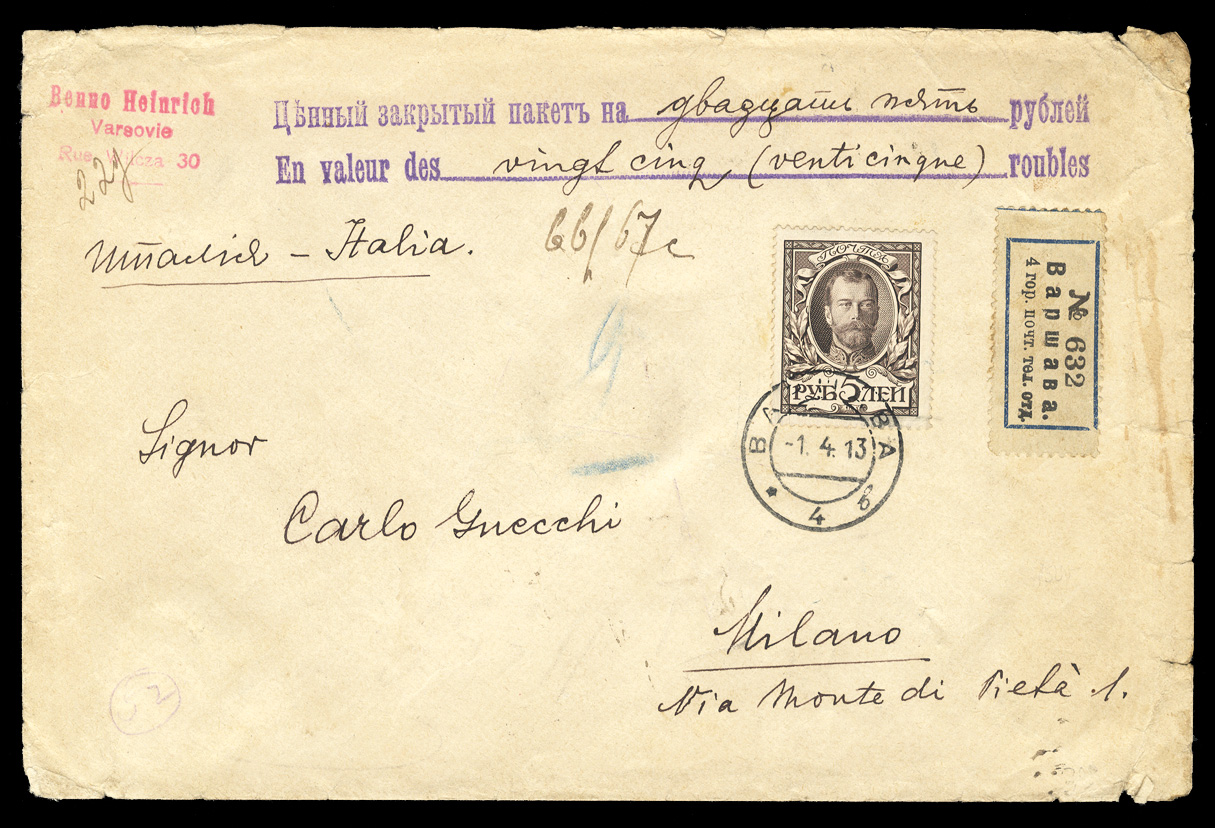 Benno Heinrich
Varsovie
Rue Wilcza 30
Цѣнный закрытый пакетъ на двадцать пять рублей
En valeur des vingt cinq (venticinque) roubles
Италія – Italia.
66/67
ПОЧТА
РУБ 5 ЛЕЙ
№ 632
Варшава.
4 гор. почт. тел. отд.
-1. 4. 13
4 в
Signor
Carlo Gnecchi
Milano
Via Monte di Pietà 1.
52